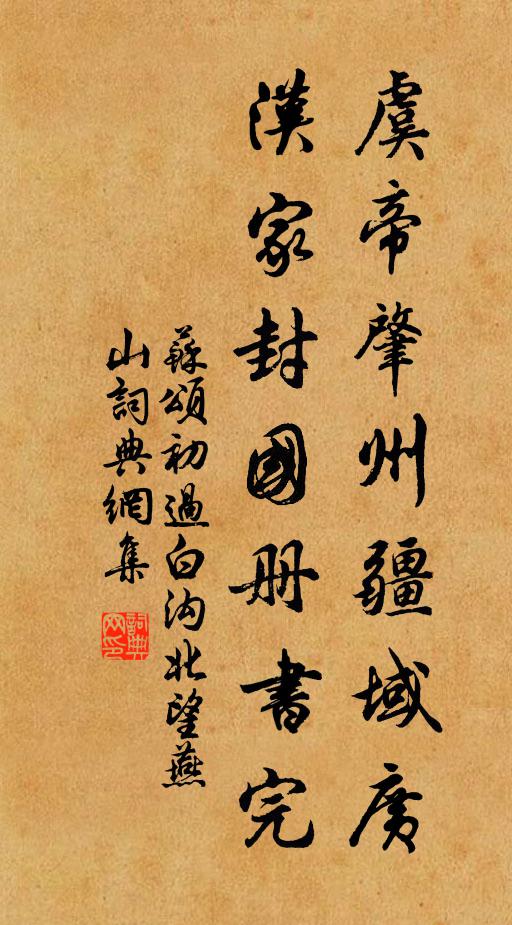 虞帝肇州疆域廣
漢家封國冊書完
蘇頌初過白沟北望燕
山詞典網集
詞典网印